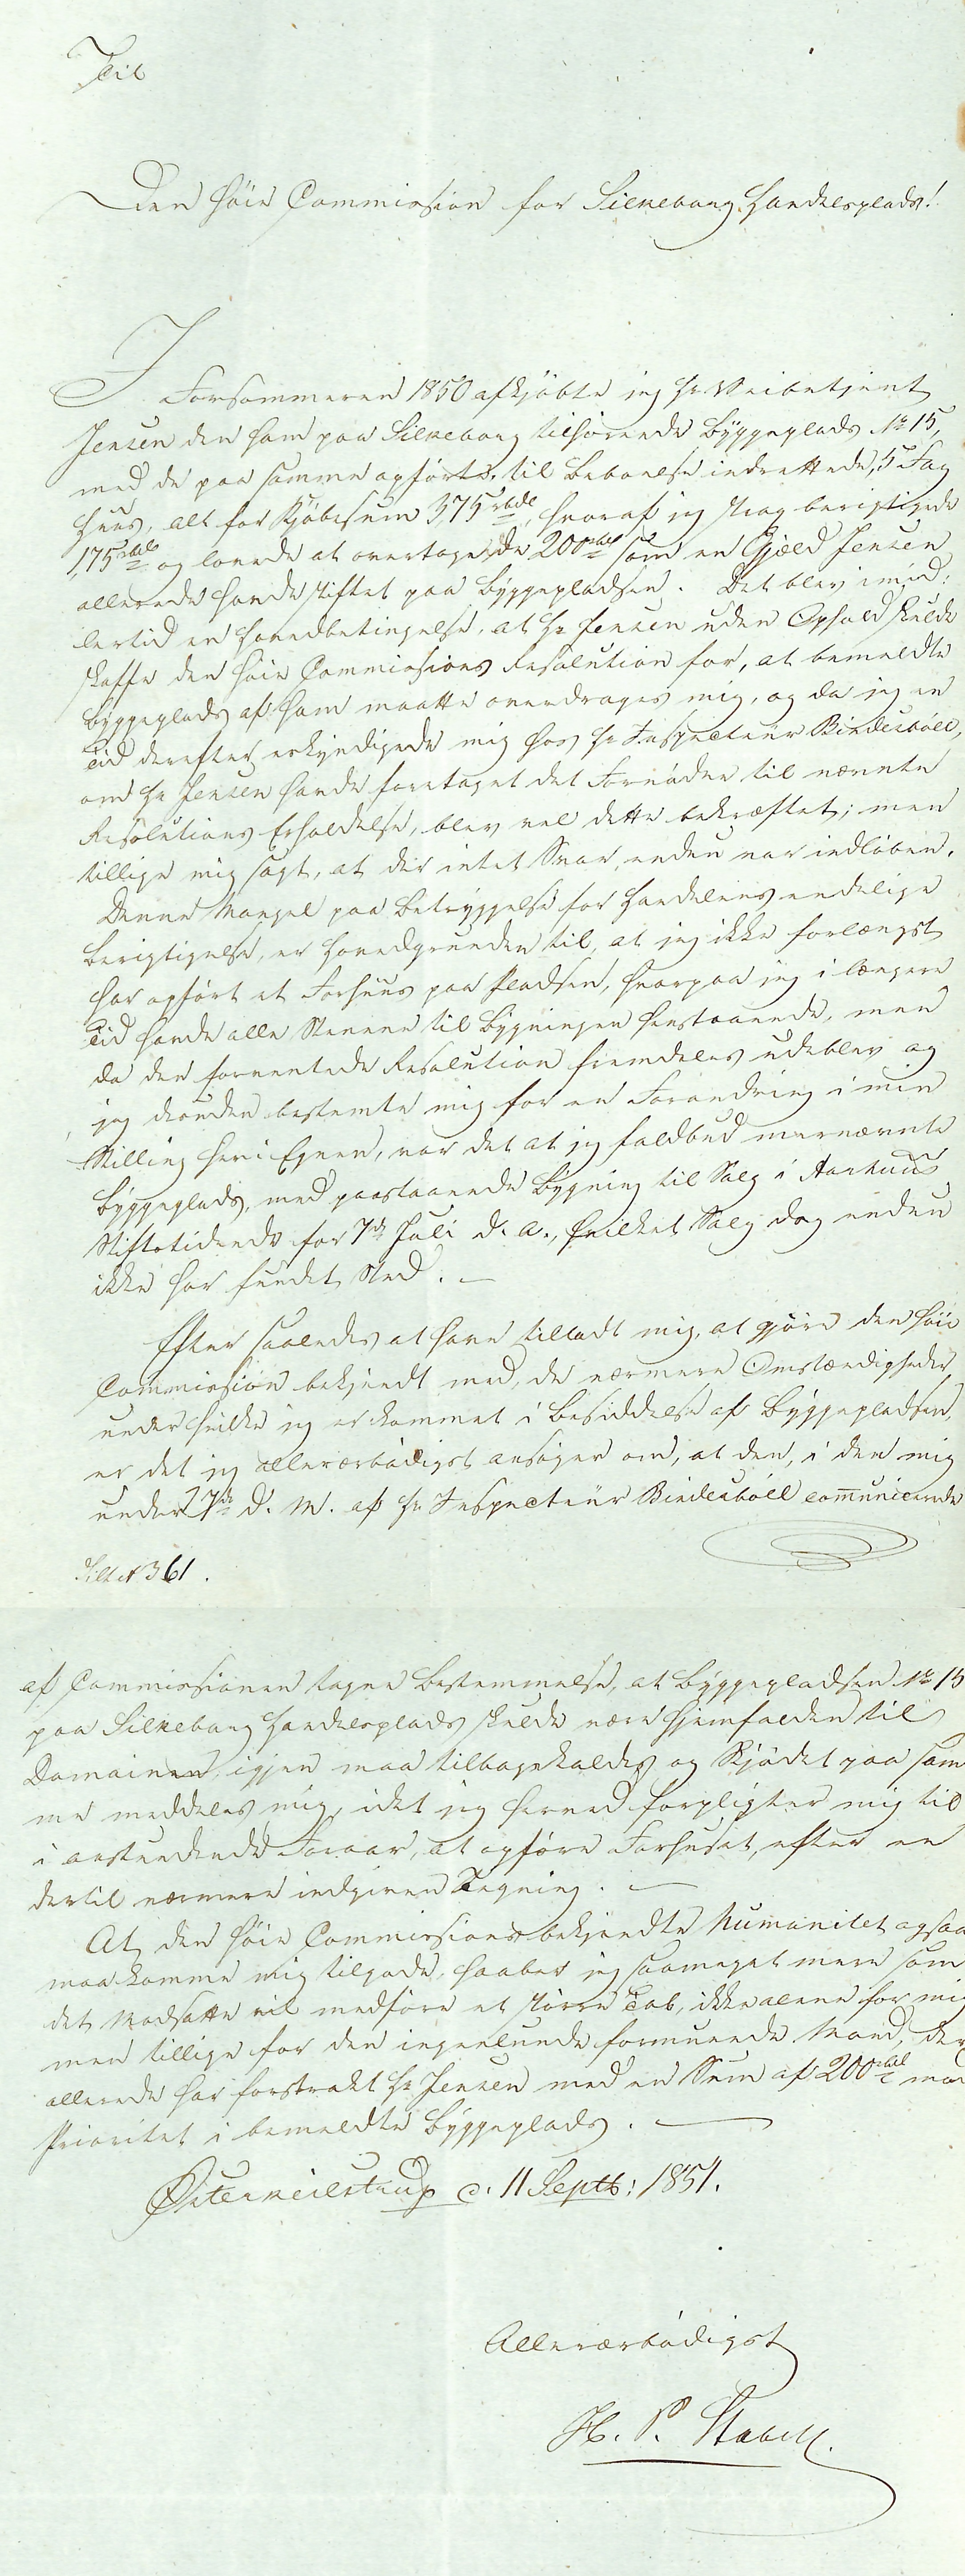 Til
Den høie Commission for Silkeborg Handelsplads!
I Forsommeren 1850 afkjøbte jeg Hr. Skibetjent
Jensen den ham paa Silkeborg tilhørende Byggeplads No 15,
med de paa samme opførte, til Beboelse indrettede, 5 Fag
Huus, alt for Kjøbesum 375 rbdl, hvoraf jeg strax berigtigede
175 rbdl og lovede at overtage de 200 rbdl som en Gjæld Jensen
allerede havde stiftet paa Byggepladsen. Det blev imid:
lertid en Hovedbetingelse, at Hr Jensen uden Ophold skulde
skaffe den høie Commissions Resolution for, at bemeldte
Byggeplads af ham maatte overdrages mig, og da jeg en
Tid derefter erkyndigede mig hos Hr Inspecteur Bindesbøll,
om Hr Jensen havde foretaget det Fornødne til nævnte
Resolutions Erholdelse, blev vel dette bekræftet; men
tillige mig sagt, at der intet Svar endnu var indløben.
Denne Mangel paa Betryggelse for Handelens endelige
Berigtigelse, er Hovedgrunden til, at jeg ikke forlængst
har opført et Forhuus paa Pladsen, hvorpaa jeg i længere
Tid havde alle Stenene til Bygningen henstaaende, men
da den forventede Resolution fremdeles udeblev og
jeg desuden bestemte mig for en Forandring i min
Stilling her i Egnen, var det at jeg faldbud mernævnte
Byggeplads, med paastaaende Bygning til Salg i Aarhuus
Stiftstidende for 7de Juli d. A., hvilket Salg dog endnu
ikke har fundet Sted. —
Efter saaledes at have tilladt mig, at gjøre den høie
Commission bekjendt med, de nærmere Omstændigheder,
under hvilke jeg er kommet i Besiddelse af Byggepladsen,
er det jeg allerærbødigst ansøger om, at den, i den mig
under 7de d. M. af Hr Inspecteur Bindesbøll communicerede
Silk. No 361.
af Commissionen tagne Bestemmelse, at Byggepladsen No 15
paa Silkeborg Handelsplads skulde være hjemfalden til
Domainen, igjen maa tilbagekaldes og Skjødet paa sam
me meddeles mig, idet jeg herved forpligter mig til
i anstundende Foraar, at opføre Forhuset, efter en
dertil nærmere indgiven Tegning. —
At den høie Commissions bekjendte Humanitet ogsaa
maa komme mig tilgode, haaber jeg saameget mere som
det Modsatte vil medføre et større Tab, ikke alene for mig
men tillige for den ingenlunde formuende Mand, der
allerede har forstrakt Hr Jensen med en Sum af 200 rbdl mod
Prioritet i bemeldte Byggeplads. —
Østerkeilstrup d. 11 Septb: 1851.
Allerærbødigst
H. P. Stabell.